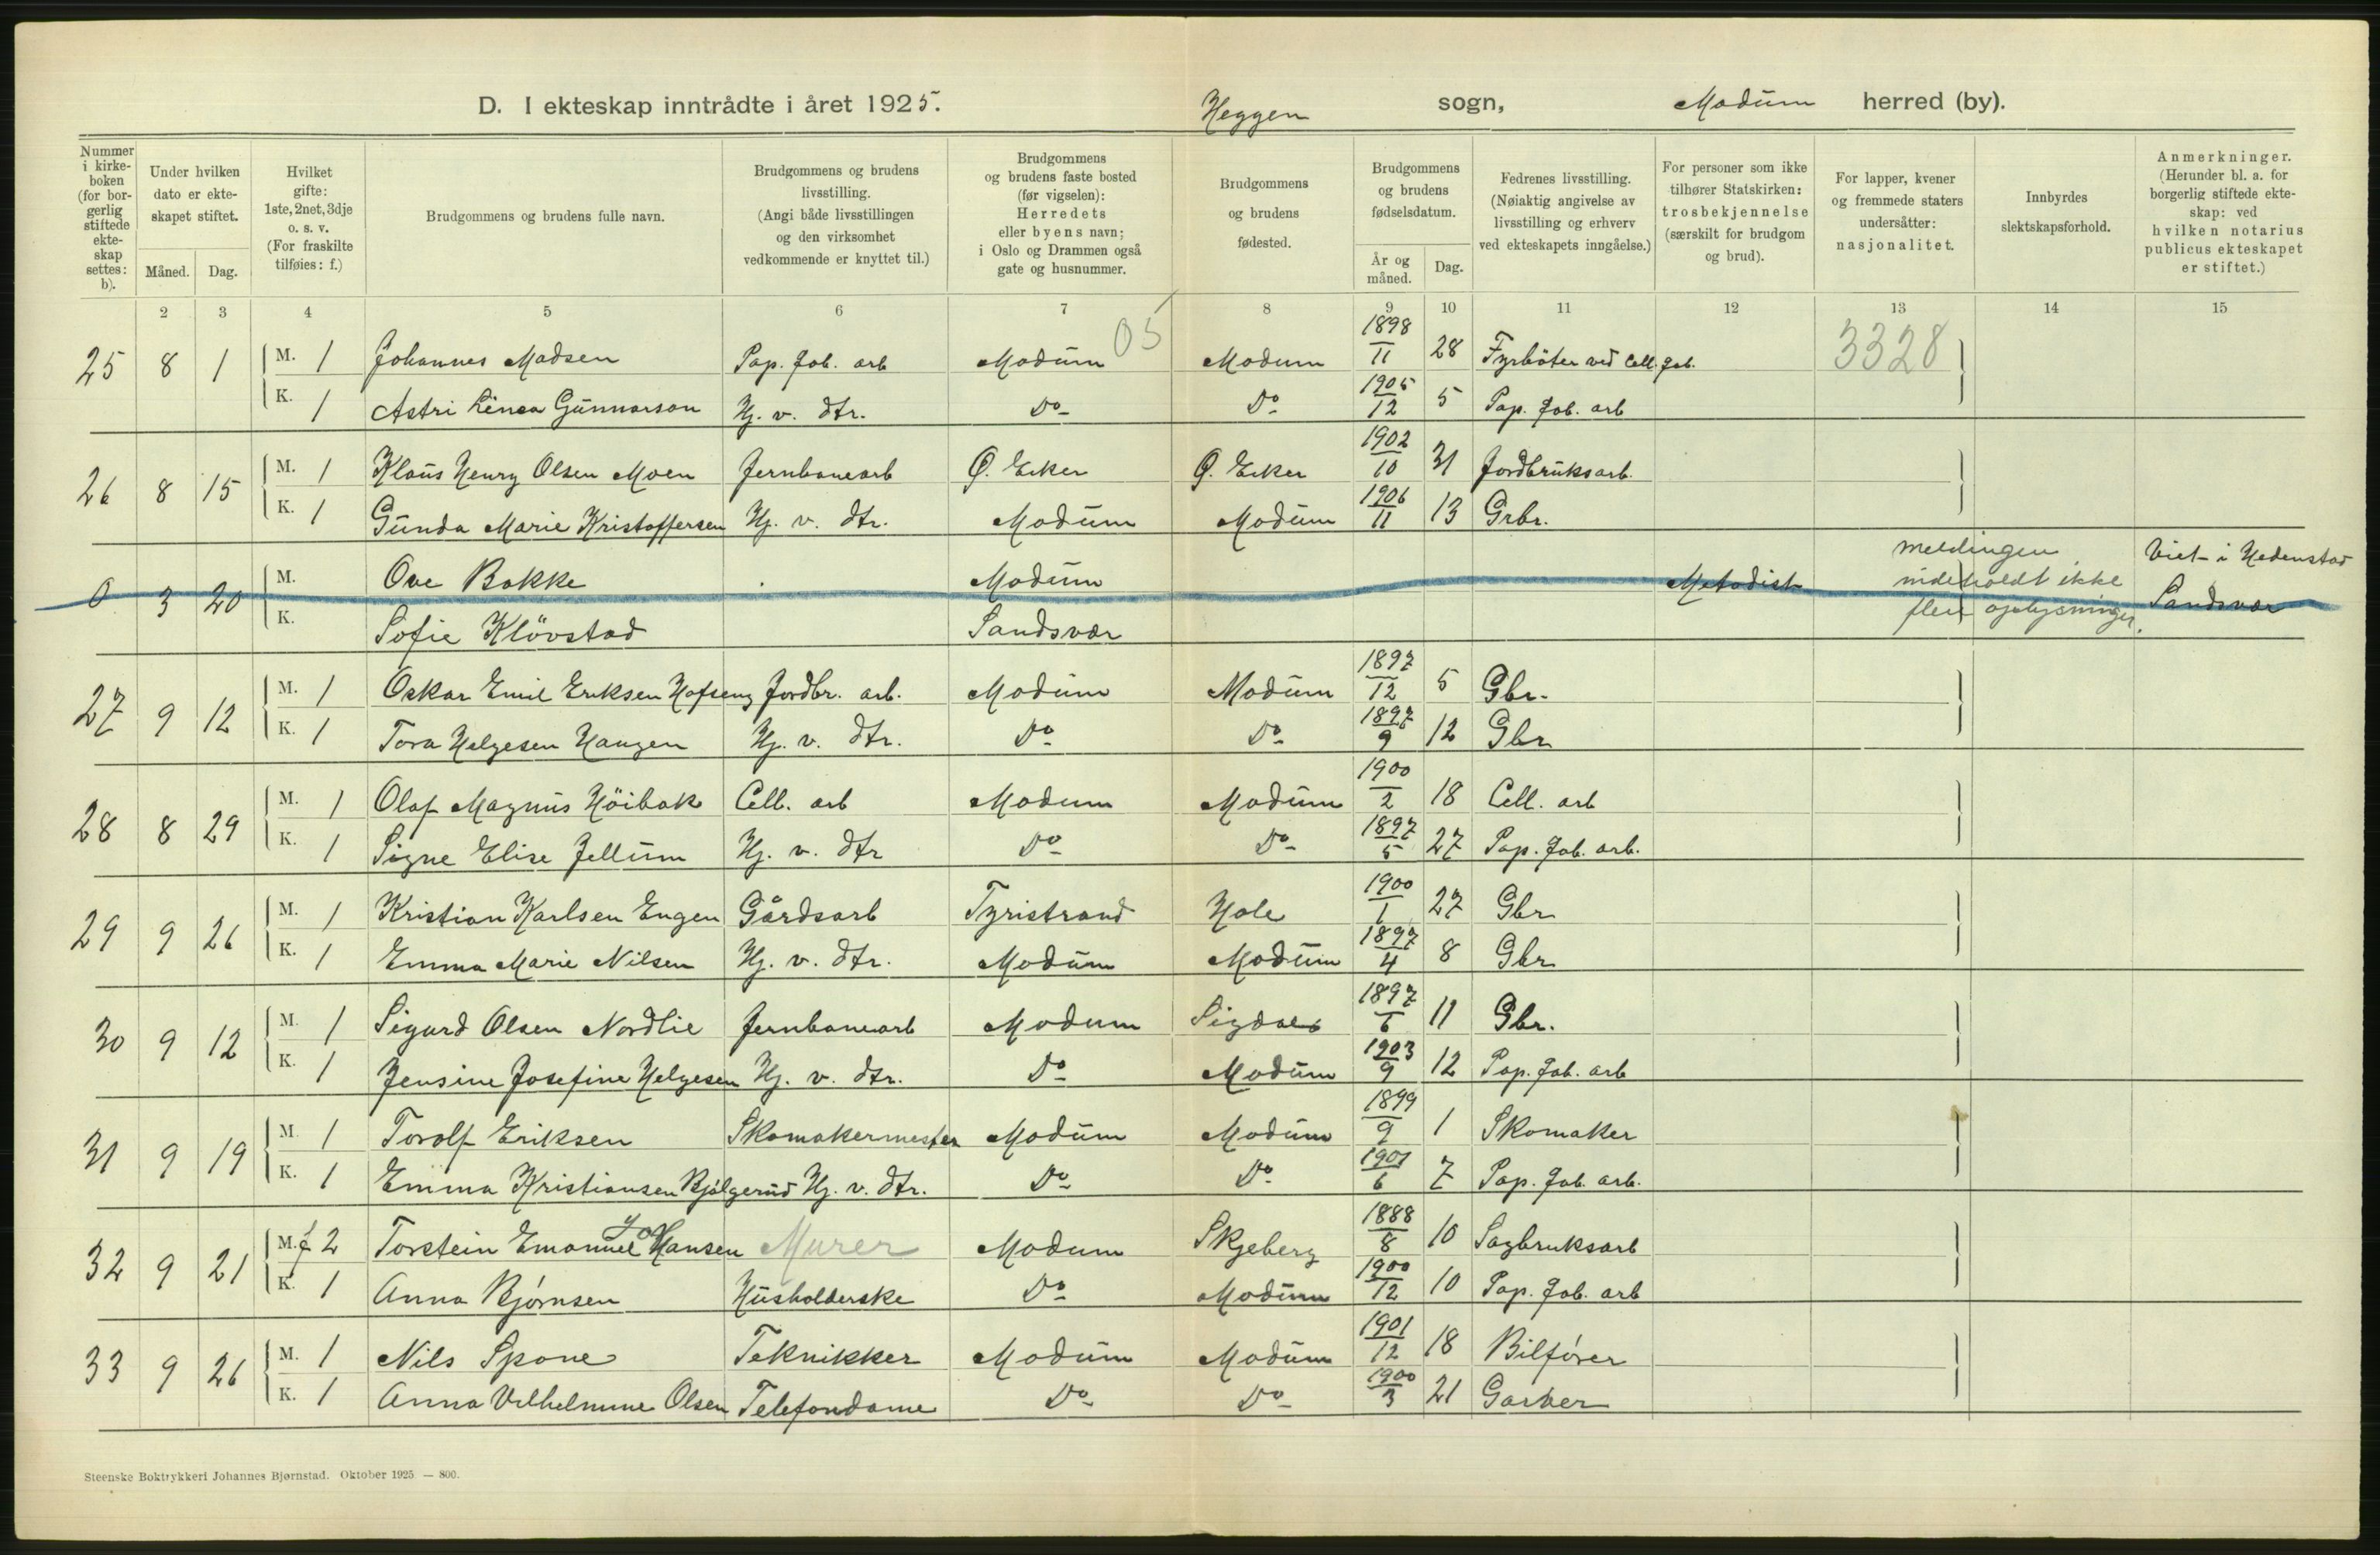 D. I ekteskap inntrådte i året 1925. Heggen sogn, Modum herred (by).
Nummer i kirke-boken (for bor-gerlig stiftede ekte-skap settes: b).
Under hvilken dato er ekte-skapet stiftet.
Måned. Dag.
Hvilket gifte: 1ste, 2net, 3dje o. s. v. (For fraskilte tilføies: f.)
Brudgommens og brudens fulle navn.
Brudgommens og brudens livsstilling. (Angi både livsstillingen og den virksomhet vedkommende er knyttet til.)
Brudgommens og brudens faste bosted (før vigselen): Herredets eller byens navn; i Oslo og Drammen også gate og husnummer.
Brudgommens og brudens fødested.
Brudgommens og brudens fødselsdatum.
År og måned. Dag.
Fedrenes livsstilling. (Nøiaktig angivelse av livsstilling og erhverv ved ekteskapets inngåelse.)
For personer som ikke tilhører Statskirken: trosbekjennelse (særskilt for brudgom og brud).
For lapper, kvener og fremmede staters undersåtter: nasjonalitet.
Innbyrdes slektskapsforhold.
Anmerkninger. (Herunder bl. a. for borgerlig stiftede ekte-skap: ved hvilken notarius publicus ekteskapet er stiftet.)
2 3 4 5 6 7 8 9 10 11 12 13 14 15
05 3328
25 8 1 M. 1 Johannes Madsen Pap. fab. arb Modum Modum 1898/11 28 Fyrböter ved Cell. fab.
K. 1 Astri Linea Gunnarson Hj. v. dtr. Do Do 1905/12 5 Pap. fab. arb
26 8 15 M. 1 Klaus Henry Olsen Moen Jernbanearb Ø. Eker Ø. Eker 1902/10 31 Jordbruksarb.
K. 1 Gunda Marie Kristoffersen Hj. v. dtr. Modum Modum 1906/11 13 Grbr.
0 3 20 M. Ove Bakke Modum Metodist meldingen indeholdt ikke flere oplysninger. Viet i Hedenstad Sandsvær
K. Sofie Klövstad Sandsvær
27 9 12 M. 1 Oskar Emil Eriksen Hofseng Jordbr. arb. Modum Modum 1897/12 5 Gbr.
K. 1 Tora Helgesen Haugen Hj. v. dtr. Do Do 1897/9 12 Gbr
28 8 29 M. 1 Olaf Magnus Höibak Cell. arb Modum Modum 1900/2 18 Cell. arb
K. 1 Signe Elise Jellum Hj. v. dtr Do Do 1897/5 27 Pap. fab. arb.
29 9 26 M. 1 Kristian Karlsen Engen Gårdsarb Tyristrand Hole 1900/1 27 Gbr
K. 1 Emma Marie Nilsen Hj. v. dtr. Modum Modum 1897/4 8 Gbr
30 9 12 M. 1 Sigurd Olsen Nordlie Jernbanearb Modum Sigdal 1897/6 11 Gbr.
K. 1 Jensine Josefine Helgesen Hj. v. dtr. Do Modum 1903/9 12 Pap. fab. arb
31 9 19 M. 1 Torolf Eriksen Skomakermester Modum Modum 1899/9 1 Skomaker
K. 1 Emma Kristiansen Bjålgerud Hj. v. dtr. Do Do 1901/6 7 Pap. fab. arb.
32 9 21 M. f 2 Torstein Emanuel Johansen Murer Modum Skjeberg 1888/8 10 Sagbruksarb
K. 1 Anna Bjørnsen Husholderske Do Modum 1900/12 10 Pap. fab. arb
33 9 26 M. 1 Nils Spone Teknikker Modum Modum 1901/12 18 Bilfører
K. 1 Anna Vilhelmine Olsen Telefondame Do Do 1900/3 21 Garver
Steenske Boktrykkeri Johannes Bjørnstad. Oktober 1925 — 800.